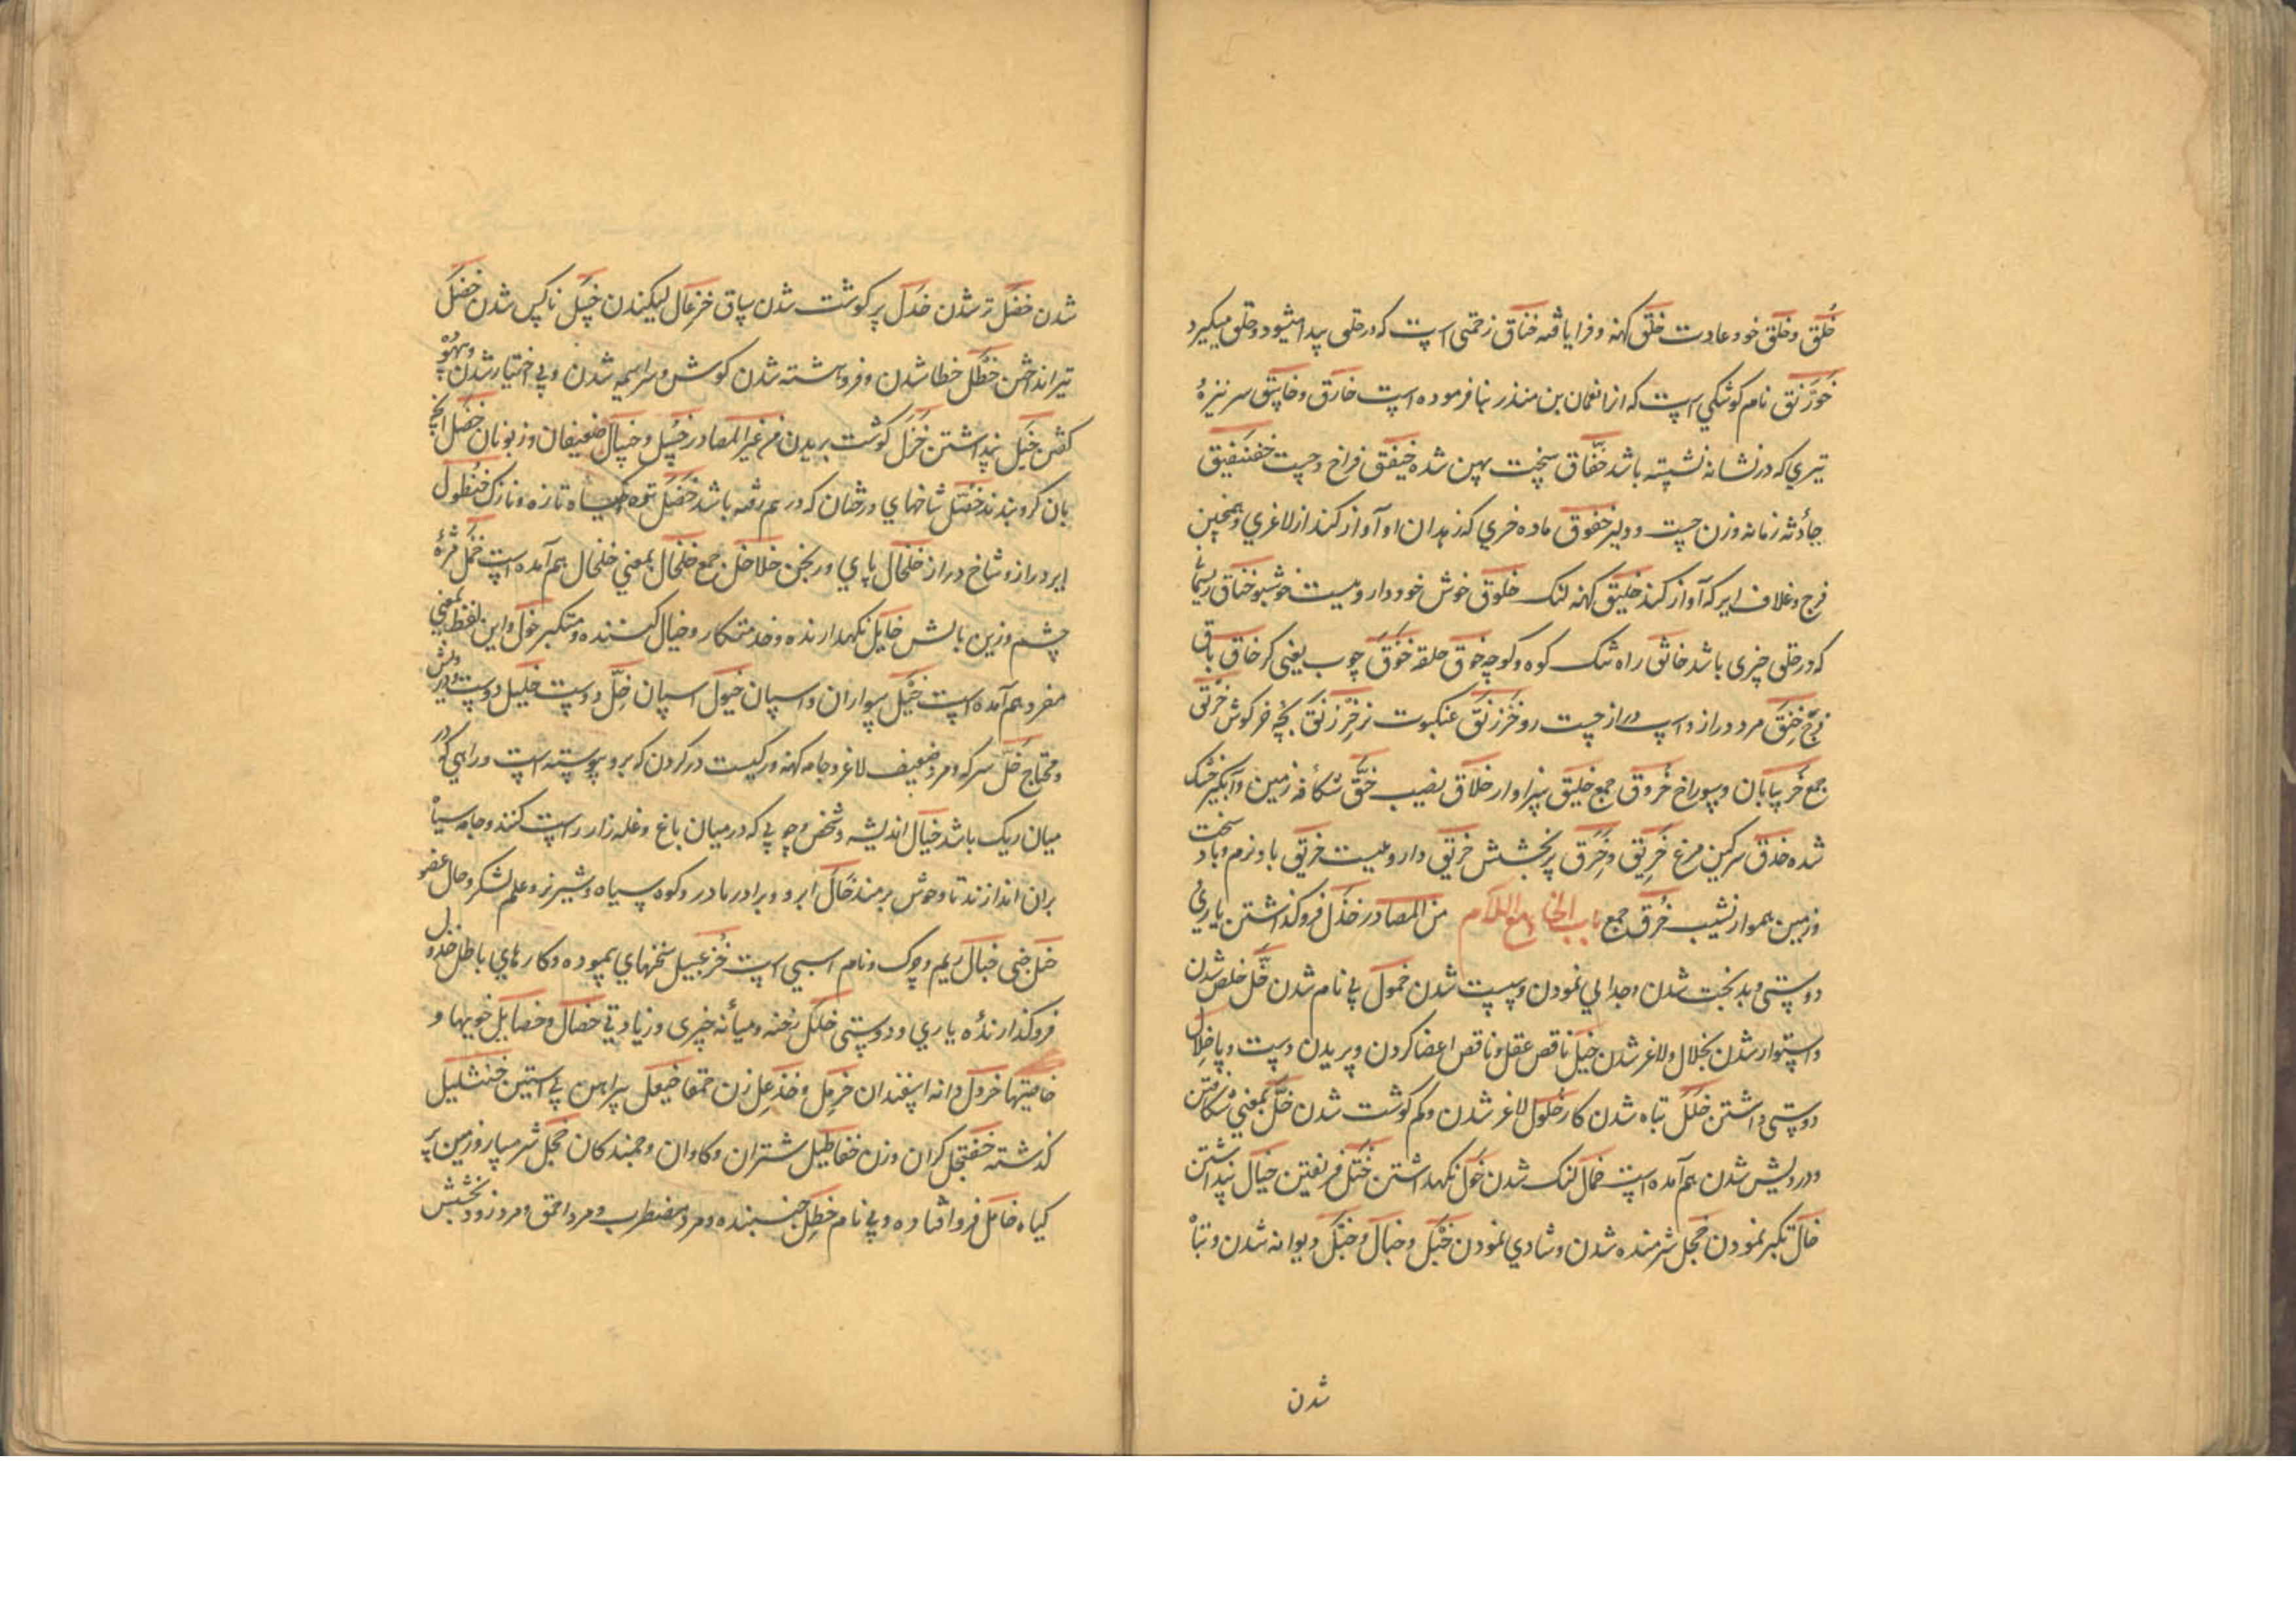 خُلق و خُلُق خو و عادت خَلَق کهنه و فرا یافته خناق زحمتی است که در حلق پیدا میشود و حلق میکیرد
خَوَرْنَق نام کوشکی است که انرا نعمان بن منذر بنا فرموده است خارق و خاسق سر نیزۀ
تیری که در نشانه نشسته باشد خفّاق سخت پهن شده خیفق فراخ و چست خنفقیق
حادثه زمانه و زن چست و دلیر خفوق ماده خری که زهدان او آواز کند از لاغری و همچنین
فرج و غلاف ایر که آواز کند خلیق کهنه لنک خلوق خوش خو و داروییست خوشبو خناق ریسمانی
که در حلق چیزی باشد خانق راه تنک کوه و کوچه خوق حلقه خَوَق چوب یعنی کر خاق باق
فرج خِنِق مرد دراز و اسپ دراز چست رو خَزَرْنَق عنکبوت نر خِرْنِق بچه خرکوش خَرق
جمع خَرق بیابان و سوراخ خُروق جمع خلیق سزاوار خلاق نصیب خقّ شکافه زمین و آبکیر خشک
شده خذق سرکین مرغ خِرّیق و خِرق پر بخشش خربق داروییست خریق باد نرم و باد سخت
و زمین هموار نشیب خُرق جمع باب الخا مع اللام من المصادر خذل فروکذاشتن یاری
دوستی و بدبخت شدن و جدایی نمودن و سست شدن خمول بی نام شدن خَلّ خلص شدن
و استوار شدن بخلال و لاغر شدن خبل ناقص عقل و ناقص اعضا کردن و بریدن دست و پا خِلال
دوستی داشتن خلل تباه شدن کار خُلول لاغر شدن و کم کوشت شدن خَلّ بمعنی شکافتن
و درویش شدن هم آمده است خمال لنک شدن خول نکهداشتن خَتل فریفتن خیال پنداشتن
خال تکبر نمودن خجل شرمنده شدن و شادی نمودن خَبل و خبال و خَبَل دیوانه شدن و تباه
شدن
شدن خضل تر شدن خدل پر کوشت شدن ساق خزعال لنکیدن خسل ناکس شدن خصل
تیر انداختن خَطَل خطا شدن و فروهشته شدن کوش و سراسیمه شدن و بی اختیار شدن و بیهوده
کفتن خیل پنداشتن خزل کوشت بریدن من غیر المصادر خُسّل و خسال ضعیفان و زبونان خصل آنچه
بان کرو بندند خصل شاخهای درختان که در هم رفته باشد خضل تر و کیاه تازه و نازک خنطول
ایر دراز و شاخ دراز خلخال پای ورنجن خلاخل جمع خلخال بمعنی خلخال هم آمده است خمل مژۀ
چشم و زین بالش خایل نکهدارنده و خدمتکار و خیال کننده و متکبر خول و این لفظ بمعنی
مفرد هم آمده است خیل سواران و اسپان خیول اسپان خِلّ دوست خلیل دوست و درویش
و محتاج خَلّ سرکه و مرد ضعیف لاغر و جامه کهنه و رکیست در کردن که برو پیوسته است و راهی که در
میان ریک باشد خیال اندیشه و شخص و چوبی که در میان باغ و غله زار راست کنند و جامه سیاه
بران اندازند تا وحوش برمند خال ابر و برادر مادر و کوه سیاه و شیر نر و علم لشکر و خال عضو
خبل جنی خبال ریم و چرک و نام اسبی است خُزَعبیل سخنهای بیهوده و کارهای باطل خذول
فروکذارندۀ یاری و دوستی خلل رخنه و میانه چیزی و زیادتی خصال و خصایل خویها و
خاصیتها خردل دانه اسفندان خِرمِل و خذعل زن حمقا خیعل پیراهن بی آستین خنشلیل
کذشته خفنجل کران وزن خناطیل شتران و کاوان و جنبندکان خجل شرمسار و زمین پر
کیاه خامل فرو افتاده و بی نام خَطِل جنبنده و مرد مضطرب و مرد احمق و مرد زود بخشش